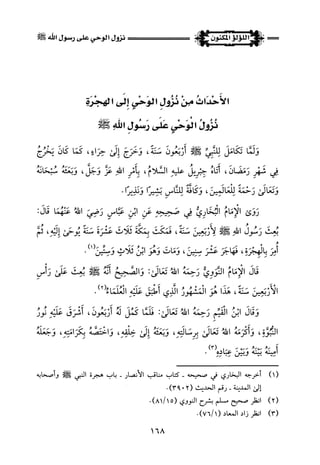 اللؤلؤ المكنون
نزول الوحي على رسول الله ﷺ
الأَحْدَاثُ مِنْ نُزُولِ الْوَحْيِ إِلَى الهِجْرَةِ
نُزُولُ الْوَحْيِ عَلَى رَسُولِ اللهِ ﷺ
وَلَمَّا تَكَامَلَ لِلنَّبِيِّ ﷺ أَرْبَعُونَ سَنَةً، وَخَرَجَ إِلَى حِرَاءٍ، كَمَا كَانَ يَخْرُجُ
فِي شَهْرِ رَمَضَانَ، أَتَاهُ جِبْرِيلُ عليهِ السَّلامُ، بِأَمْرِ اللهِ عَزَّ وَجَلَّ، وَبَعَثَهُ سُبْحَانَهُ
وَتَعَالَى رَحْمَةً لِلْعَالَمِينَ، وَكَافَّةً لِلنَّاسِ بَشِيرًا وَنَذِيرًا.
رَوَى الإِمَامُ الْبُخَارِيُّ فِي صَحِيحِهِ عَنِ ابْنِ عَبَّاسٍ رَضِيَ اللهُ عَنْهُمَا قَالَ:
بُعِثَ رَسُولُ اللهِ ﷺ لِأَرْبَعِينَ سَنَةً، فَمَكَثَ بِمَكَّةَ ثَلَاثَ عَشْرَةَ سَنَةً يُوحَى إِلَيْهِ، ثُمَّ
أُمِرَ بِالْهِجْرَةِ، فَهَاجَرَ عَشْرَ سِنِينَ، وَمَاتَ وَهُوَ ابْنُ ثَلَاثٍ وَسِتِّينَ(١).
قَالَ الإِمَامُ النَّوَوِيُّ رَحِمَهُ اللهُ تَعَالَى: وَالصَّحِيحُ أَنَّهُ ﷺ بُعِثَ عَلَى رَأْسِ
الْأَرْبَعِينَ سَنَةً، هَذَا هُوَ الْمَشْهُورُ الَّذِي أَطْبَقَ عَلَيْهِ الْعُلَمَاءُ(٢).
وَقَالَ ابْنُ الْقَيِّمِ رَحِمَهُ اللهُ تَعَالَى: فَلَمَّا كَمُلَ لَهُ أَرْبَعُونَ، أَشْرَقَ عَلَيْهِ نُورُ
النُّبُوَّةِ، وَأَكْرَمَهُ اللهُ تَعَالَى بِرِسَالَتِهِ، وَبَعَثَهُ إِلَى خَلْقِهِ، وَاخْتَصَّهُ بِكَرَامَتِهِ، وَجَعَلَهُ
أَمِينَهُ بَيْنَهُ وَبَيْنَ عِبَادِهِ(٣).
(١) أخرجه البخاري في صحيحه ـ كتاب مناقب الأنصار ـ باب هجرة النبي ﷺ وأصحابه
إلى المدينة ـ رقم الحديث (٣٩٠٢).
(٢) انظر صحيح مسلم بشرح النووي (٨١/١٥).
(٣) انظر زاد المعاد (٧٦/١).
١٦٨